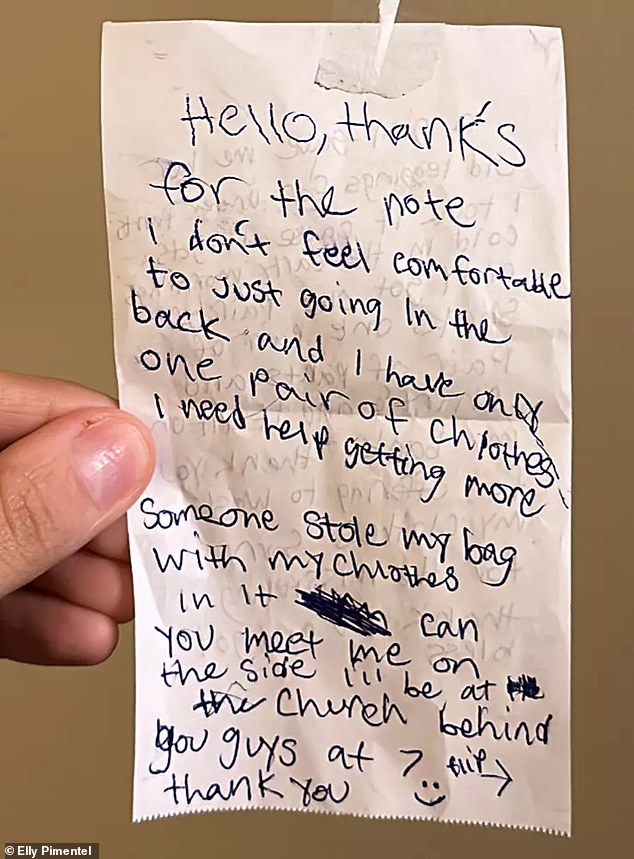 Hello, thank's
for the note
I don't feel comfortable
to just going in the
back and I have only
one pair of chlothes
I need help getting more
Someone stole my bag
with my chlothes
in it can
you meet me on
the side I'll be at
the church behind
you guys at 7 flip →
thank you
© Elly Pimentel